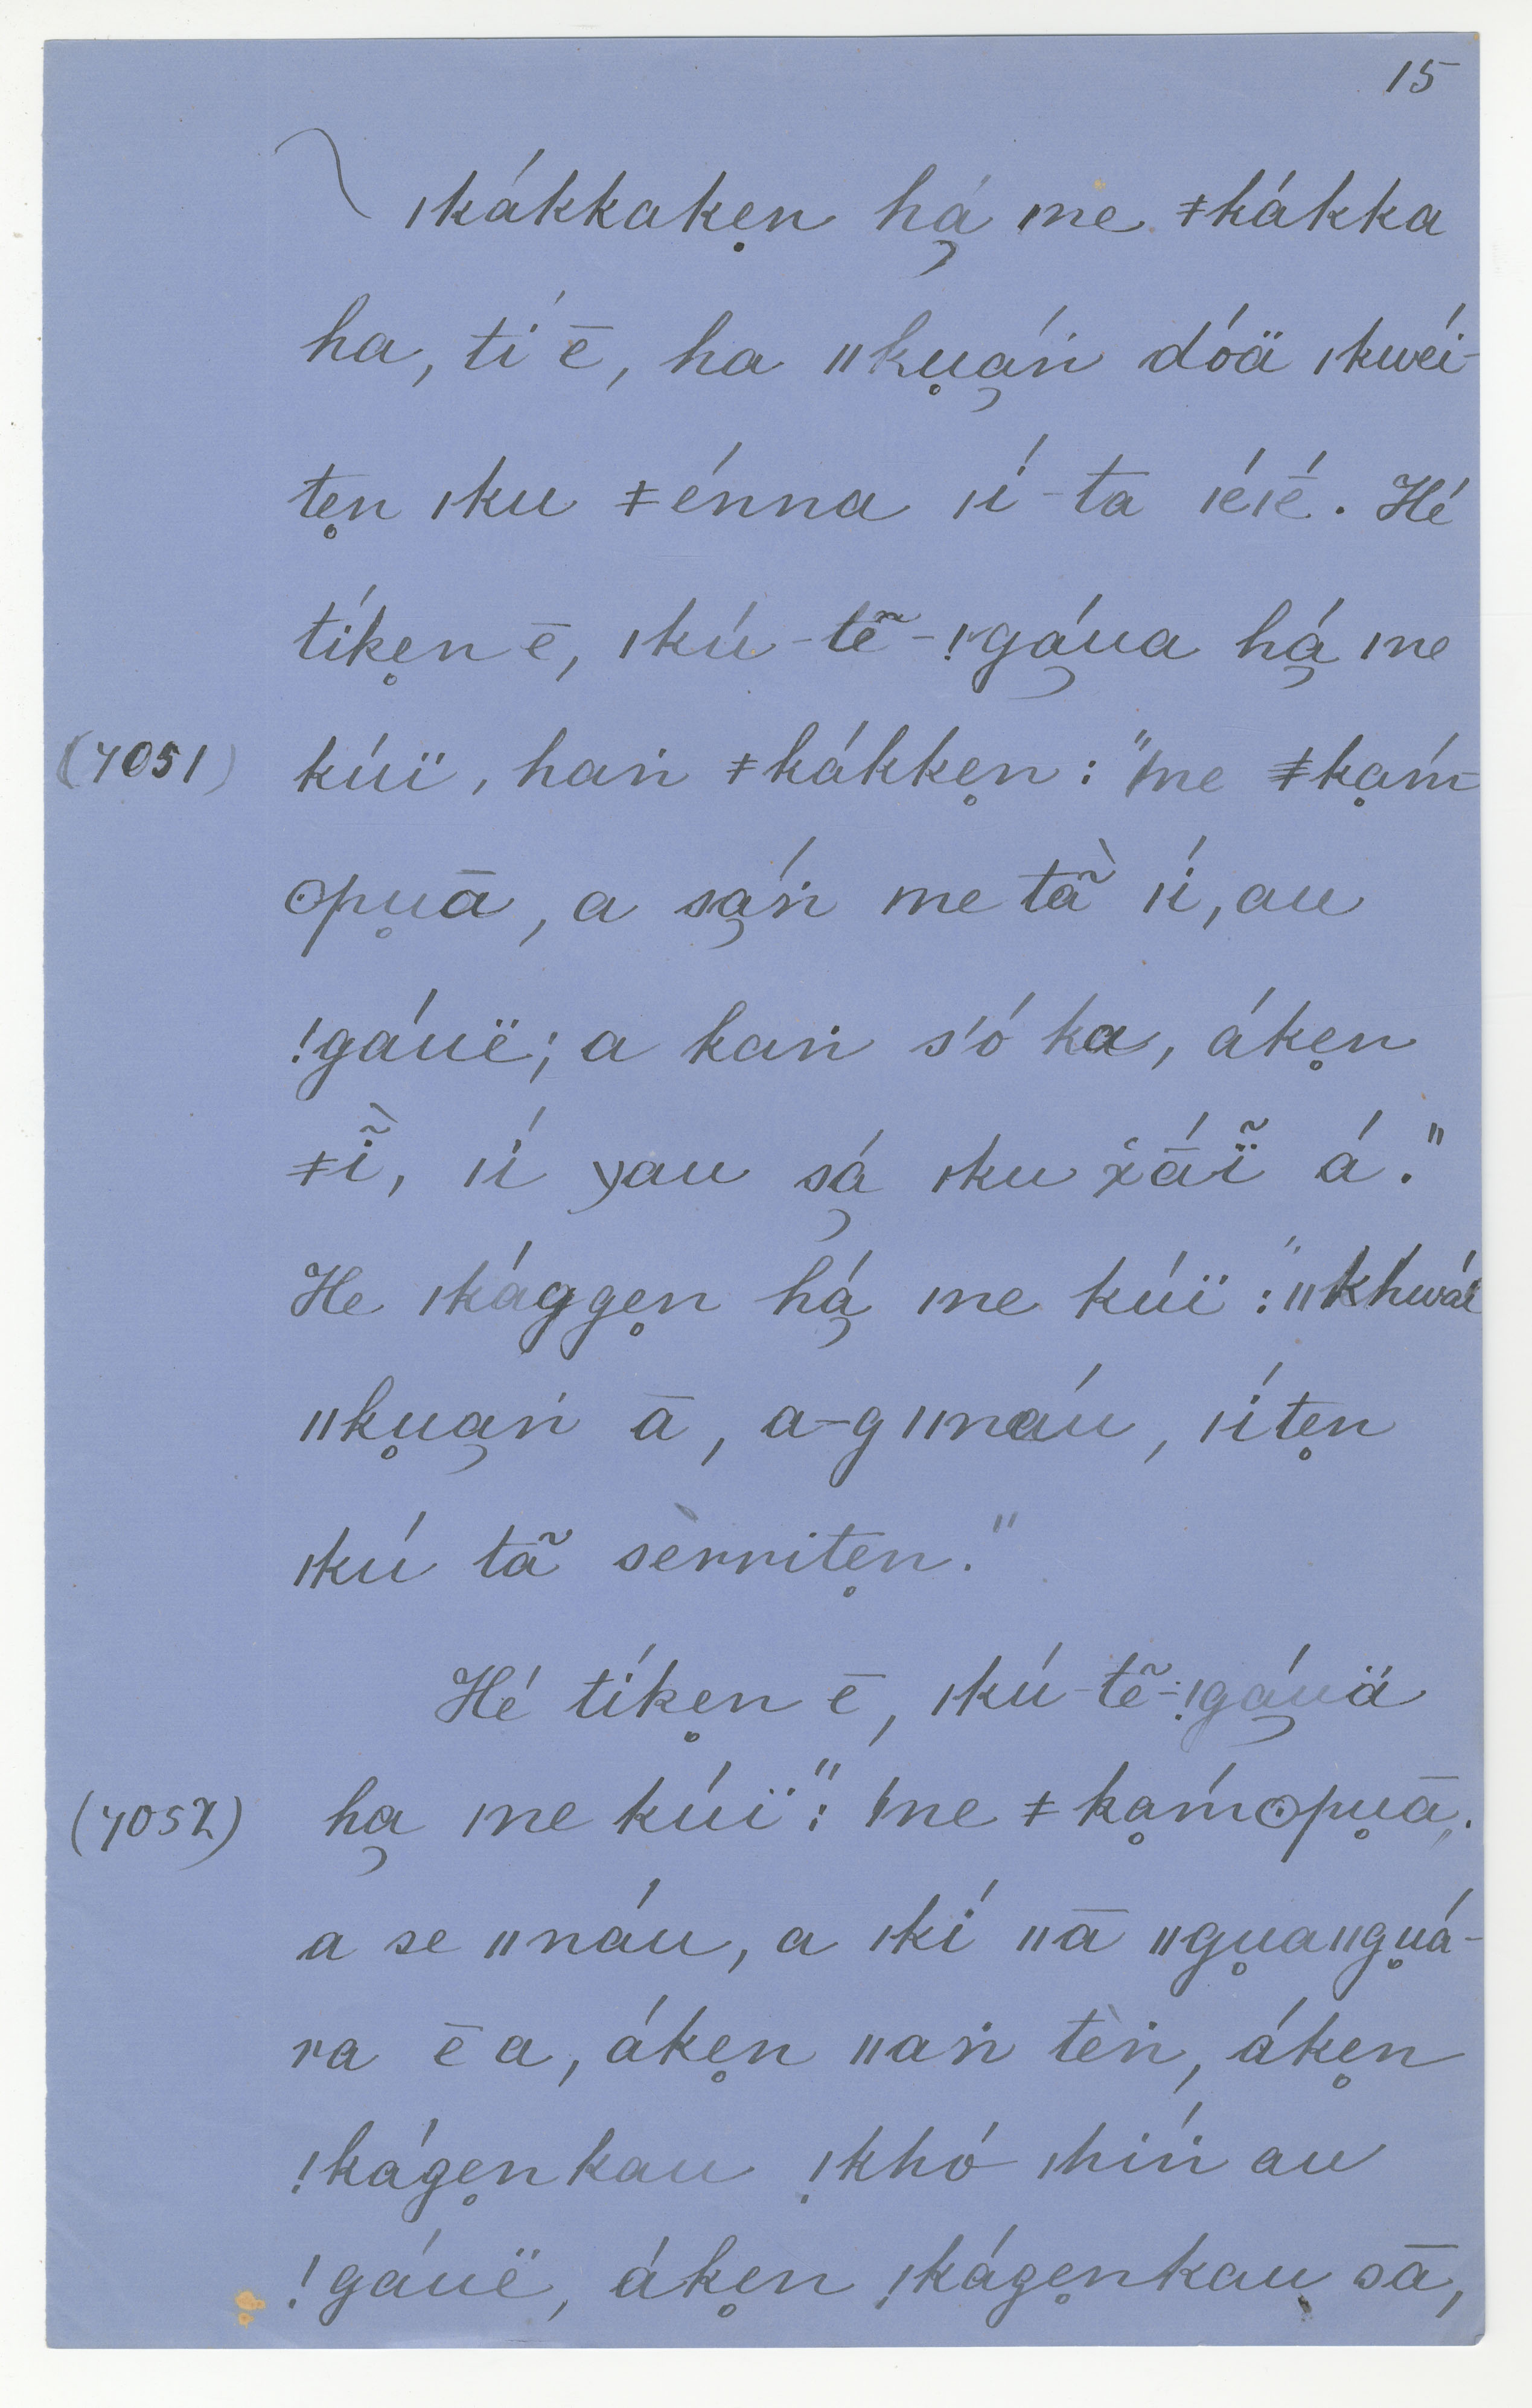 15
ǀkákkaken̥ hą́ ǀne ǂkákka
ha, tí ē, ha ǁku̥ą́ṅ dóä ǀkwéi-
ten̥ ǀku ǂénna ǀí-ta ǀéǀē. Hé
tíken̥ ē, ǀkú-tẽ-!gą́ua hą́ ǀne
(7051) kúï, haṅ ǂkákken̥: "ǀne ǂkḁḿ-
ʘpu̥ā, a są́ṅ me tã̀ ǀí, au
!gáuë; a kaṅ s'ó ka, áken̥
ǂĩ̀, ǀí yau są́ ǀku x̣ā́ï̃ á."
He ǀkággen̥ hą́ ǀne kúï: "ǁkhwaí
ǁku̥ąṅ ā, a-gǁnáu, ǀíten̥
ǀkú tã sèrriten̥."
Hé tíken̥ ē, ǀkú-tẽ-!gą́uä
(7052) hą ǀne kúï": ǀne ǂkḁḿʘpu̥ā,
a se ǁnáu, a ǀkí ǁā ǁgu̥aǁgu̥á-
ra ē a, áken̥ ǁaṅ tèṅ, áken̥
!kágen̥kau !khó ǀhíṅ au
!gáuë, áken̥ !kágen̥kau sā,